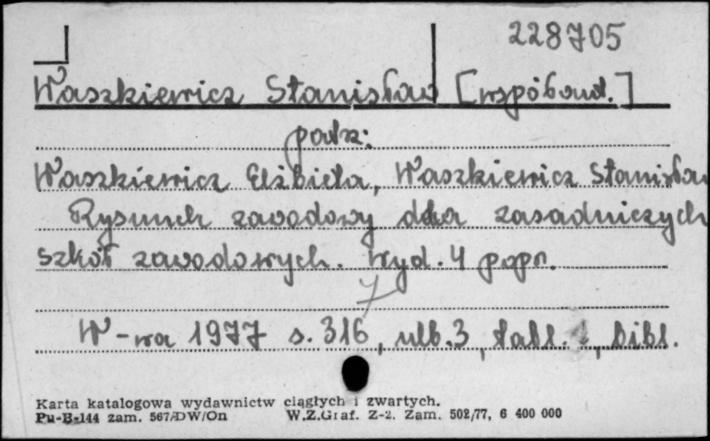 228705
Waszkiewicz Stanisław [współaut.]
patrz:
Waszkiewicz Elżbieta, Waszkiewicz Stanisław
Rysunek zawodowy dla zasadniczych
szkół zawodowych. Wyd. 4 popr.
W-wa 1977 s. 316, nlb. 3, tabl. 1, bibl.
Karta katalogowa wydawnictw ciągłych i zwartych.
Pu-B-144 zam. 567/DW/On W.Z.Graf. Z-2. Zam. 502/77, 6 400 000